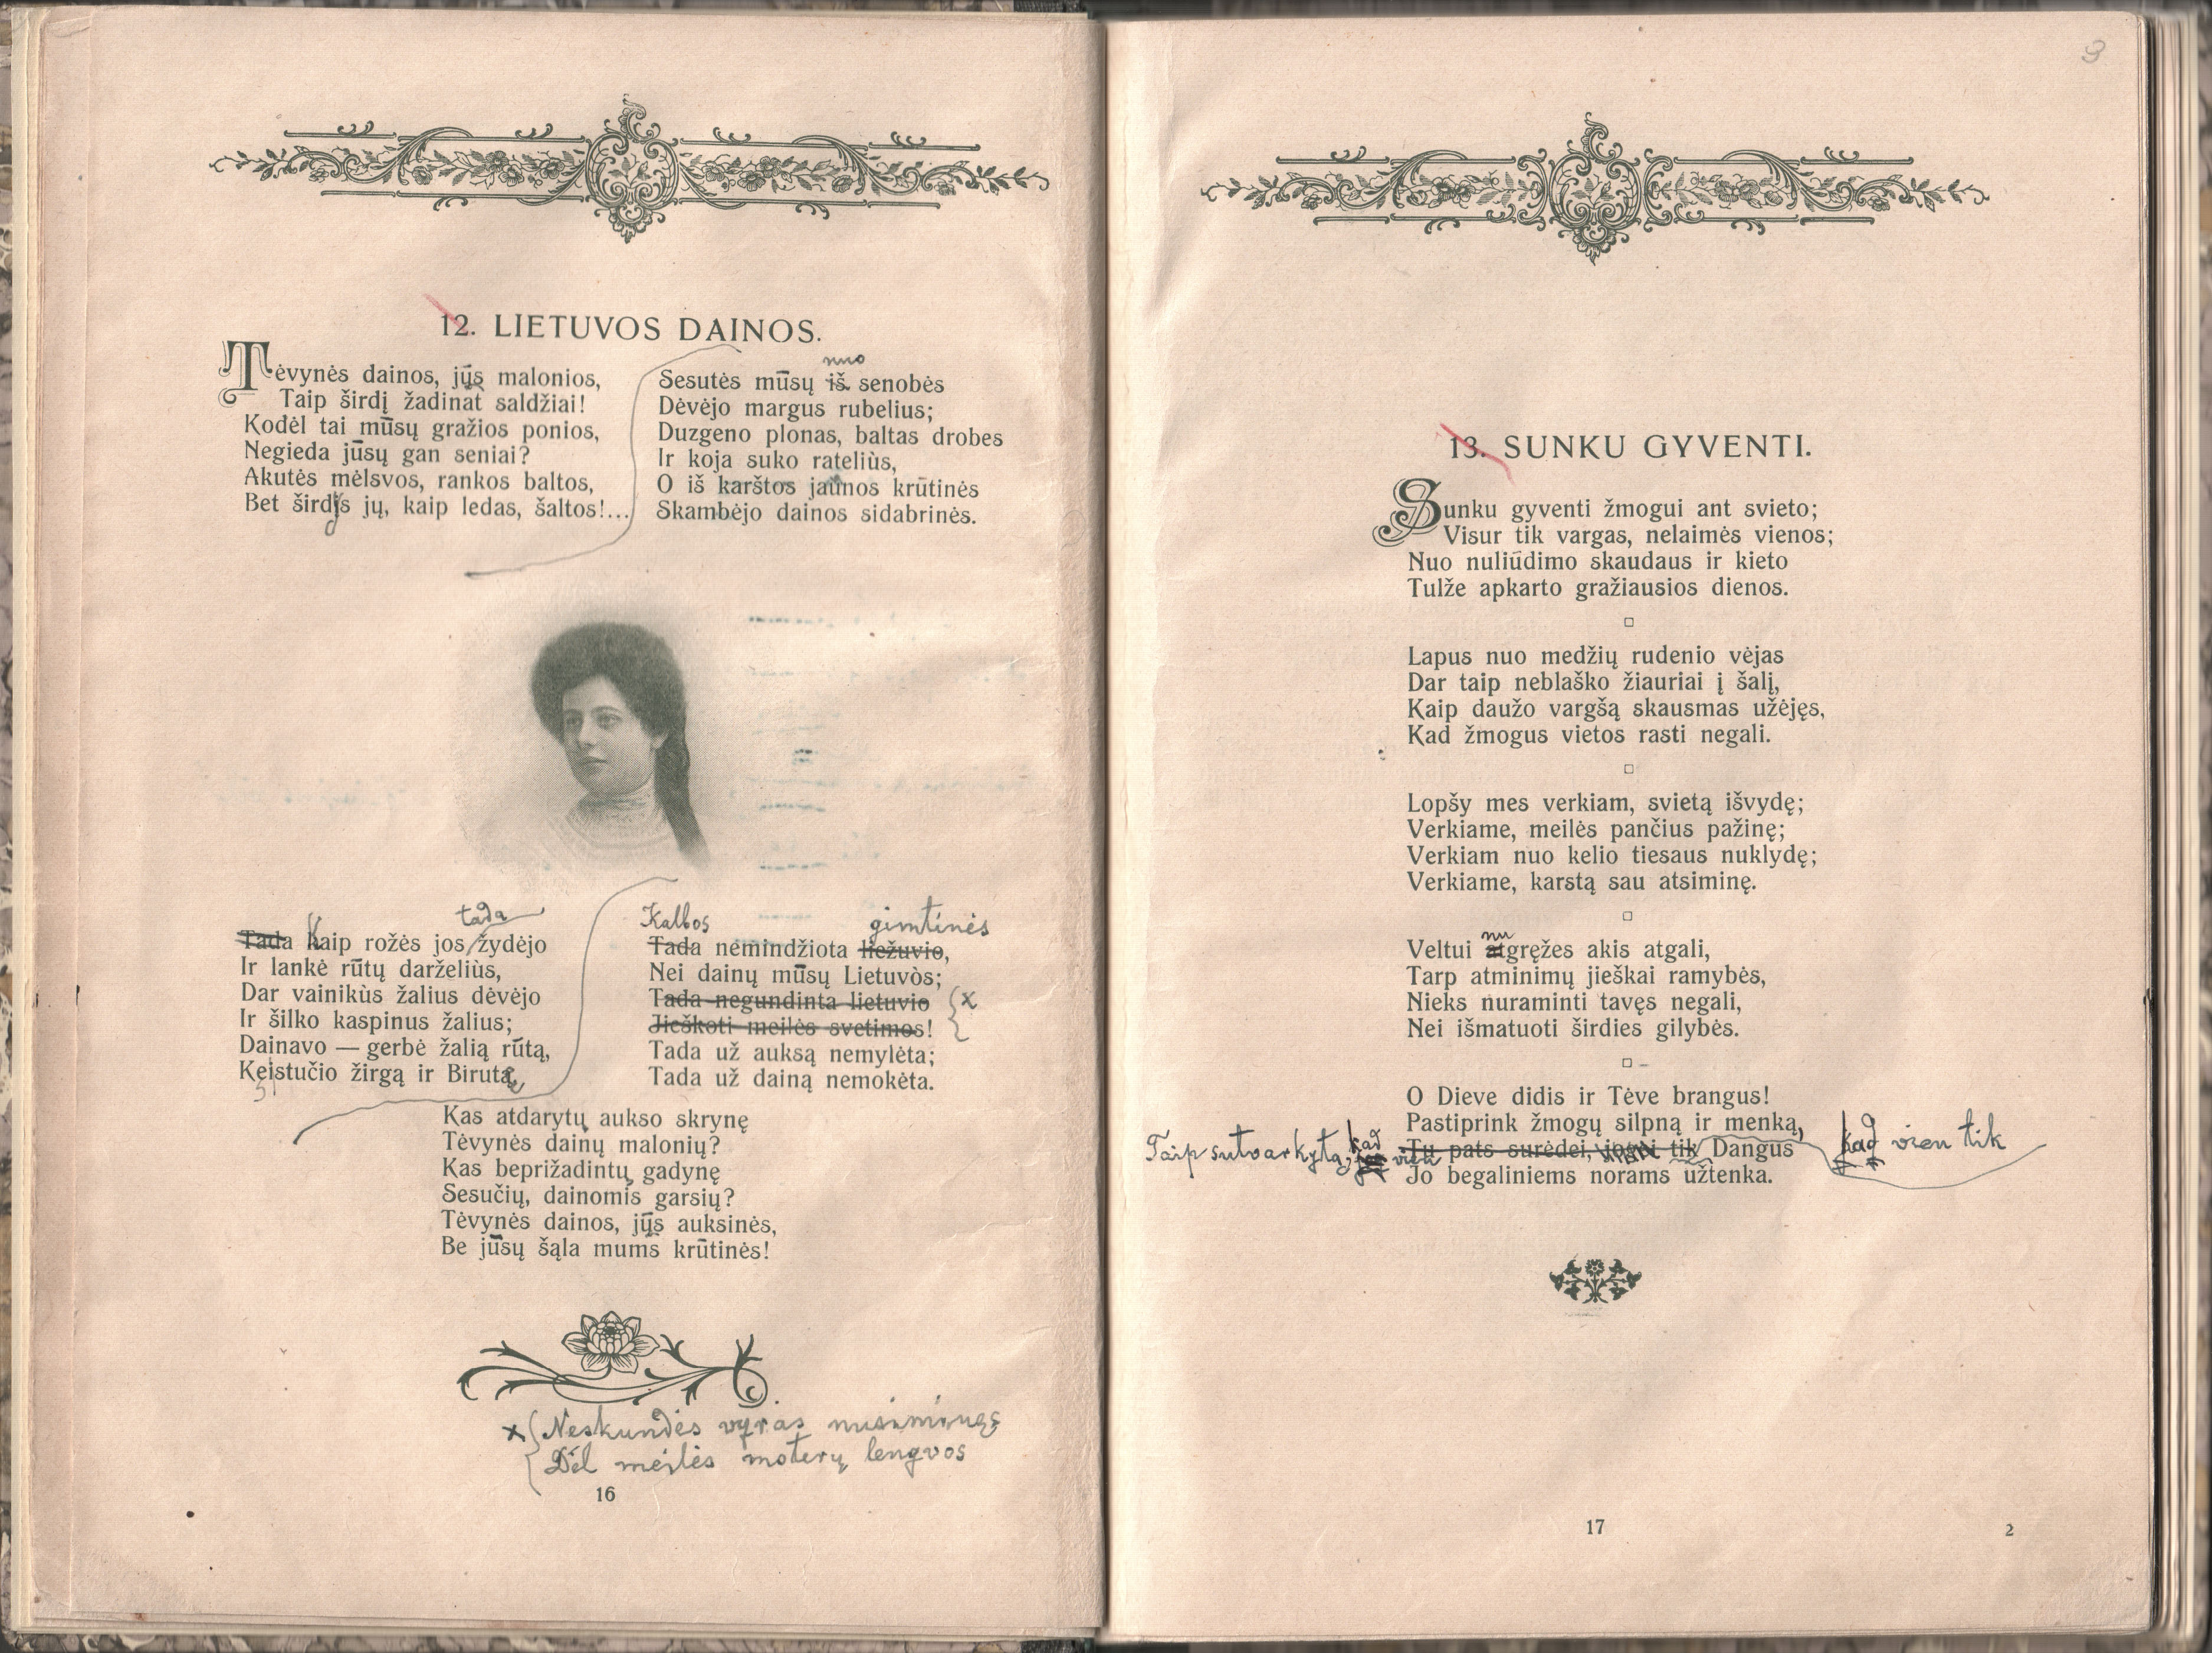 12. LIETUVOS DAINOS.
Tėvynės dainos, jųs malonios,
Taip širdį žadinat saldžiai!
Kodėl tai mūsų gražios ponios,
Negieda jūsų gan seniai?
Akutės mėlsvos, rankos baltos,
Bet širdys jų, kaip ledas, šaltos!...
nuo
Sesutės mūsų iš senobės
Dėvėjo margus rubelius;
Duzgeno plonas, baltas drobes
Ir koja suko rateliùs,
O iš karštos jaunos krūtinės
Skambėjo dainos sidabrinės.
tada
Tada kaip rožės jos žydėjo
Ir lankė rūtų darželiùs,
Dar vainikùs žalius dėvėjo
Ir šilko kaspinus žalius;
Dainavo — gerbė žalią rūtą,
Keistučio žirgą ir Birutą.
Kalbos gimtinės
Tada nemindžiota liežuvio,
Nei dainų mūsų Lietuvòs;
Tada negundinta lietuvio
Jieškoti meilės svetimos!
{x
Tada už auksą nemylėta;
Tada už dainą nemokėta.
Kas atdarytų aukso skrynę
Tėvynės dainų malonių?
Kas beprižadintų gadynę
Sesučių, dainomis garsių?
Tėvynės dainos, jųs auksinės,
Be jūsų šąla mums krūtinės!
x{Neskundės vyras nusiminęs
Dėl meilės moterų lengvos
16
3
13. SUNKU GYVENTI.
Sunku gyventi žmogui ant svieto;
Visur tik vargas, nelaimės vienos;
Nuo nuliūdimo skaudaus ir kieto
Tulže apkarto gražiausios dienos.
Lapus nuo medžių rudenio vėjas
Dar taip neblaško žiauriai į šalį,
Kaip daužo vargšą skausmas užėjęs,
Kad žmogus vietos rasti negali.
Lopšy mes verkiam, svietą išvydę;
Verkiame, meilės pančius pažinę;
Verkiam nuo kelio tiesaus nuklydę;
Verkiame, karstą sau atsiminę.
nu
Veltui atgręžes akis atgali,
Tarp atminimų jieškai ramybės,
Nieks nuraminti tavęs negali,
Nei išmatuoti širdies gilybės.
O Dieve didis ir Tėve brangus!
Pastiprink žmogų silpną ir menką,
Taip sutvarkyta, kad
Tu pats surėdei, jogei tik Dangus
kad vien tik
Jo begaliniems norams užtenka.
17
2